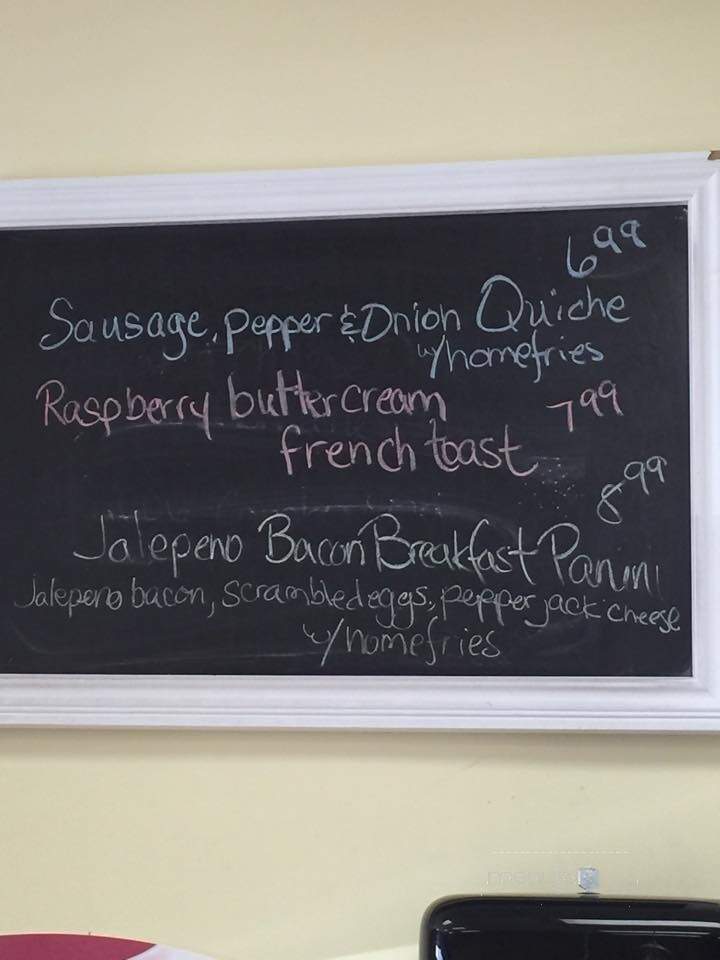 6.99
Sausage, Pepper & Onion Quiche
w/homefries
Raspberry buttercream 7.99
french toast
8.99
Jalepeno Bacon Breakfast Panini
Jalepeno bacon, scrambled eggs, pepper jack cheese
w/homefries